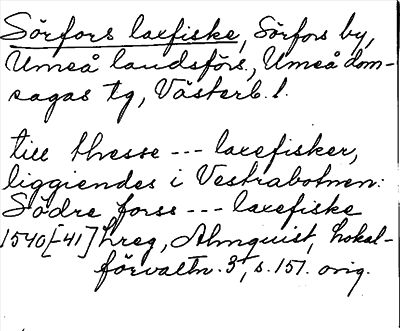 Sörfors laxfiske, Sörfors by,
Umeå landsförs, Umeå dom-
sagas tg, Västerb. l.
till thesse --- laxefisker,
liggiendes i Vestrabotnen:
Södre forss --- laxefiske
1540[-41] Lreg, Almquist, Lokal-
förvaltn. 3, s. 151. orig.